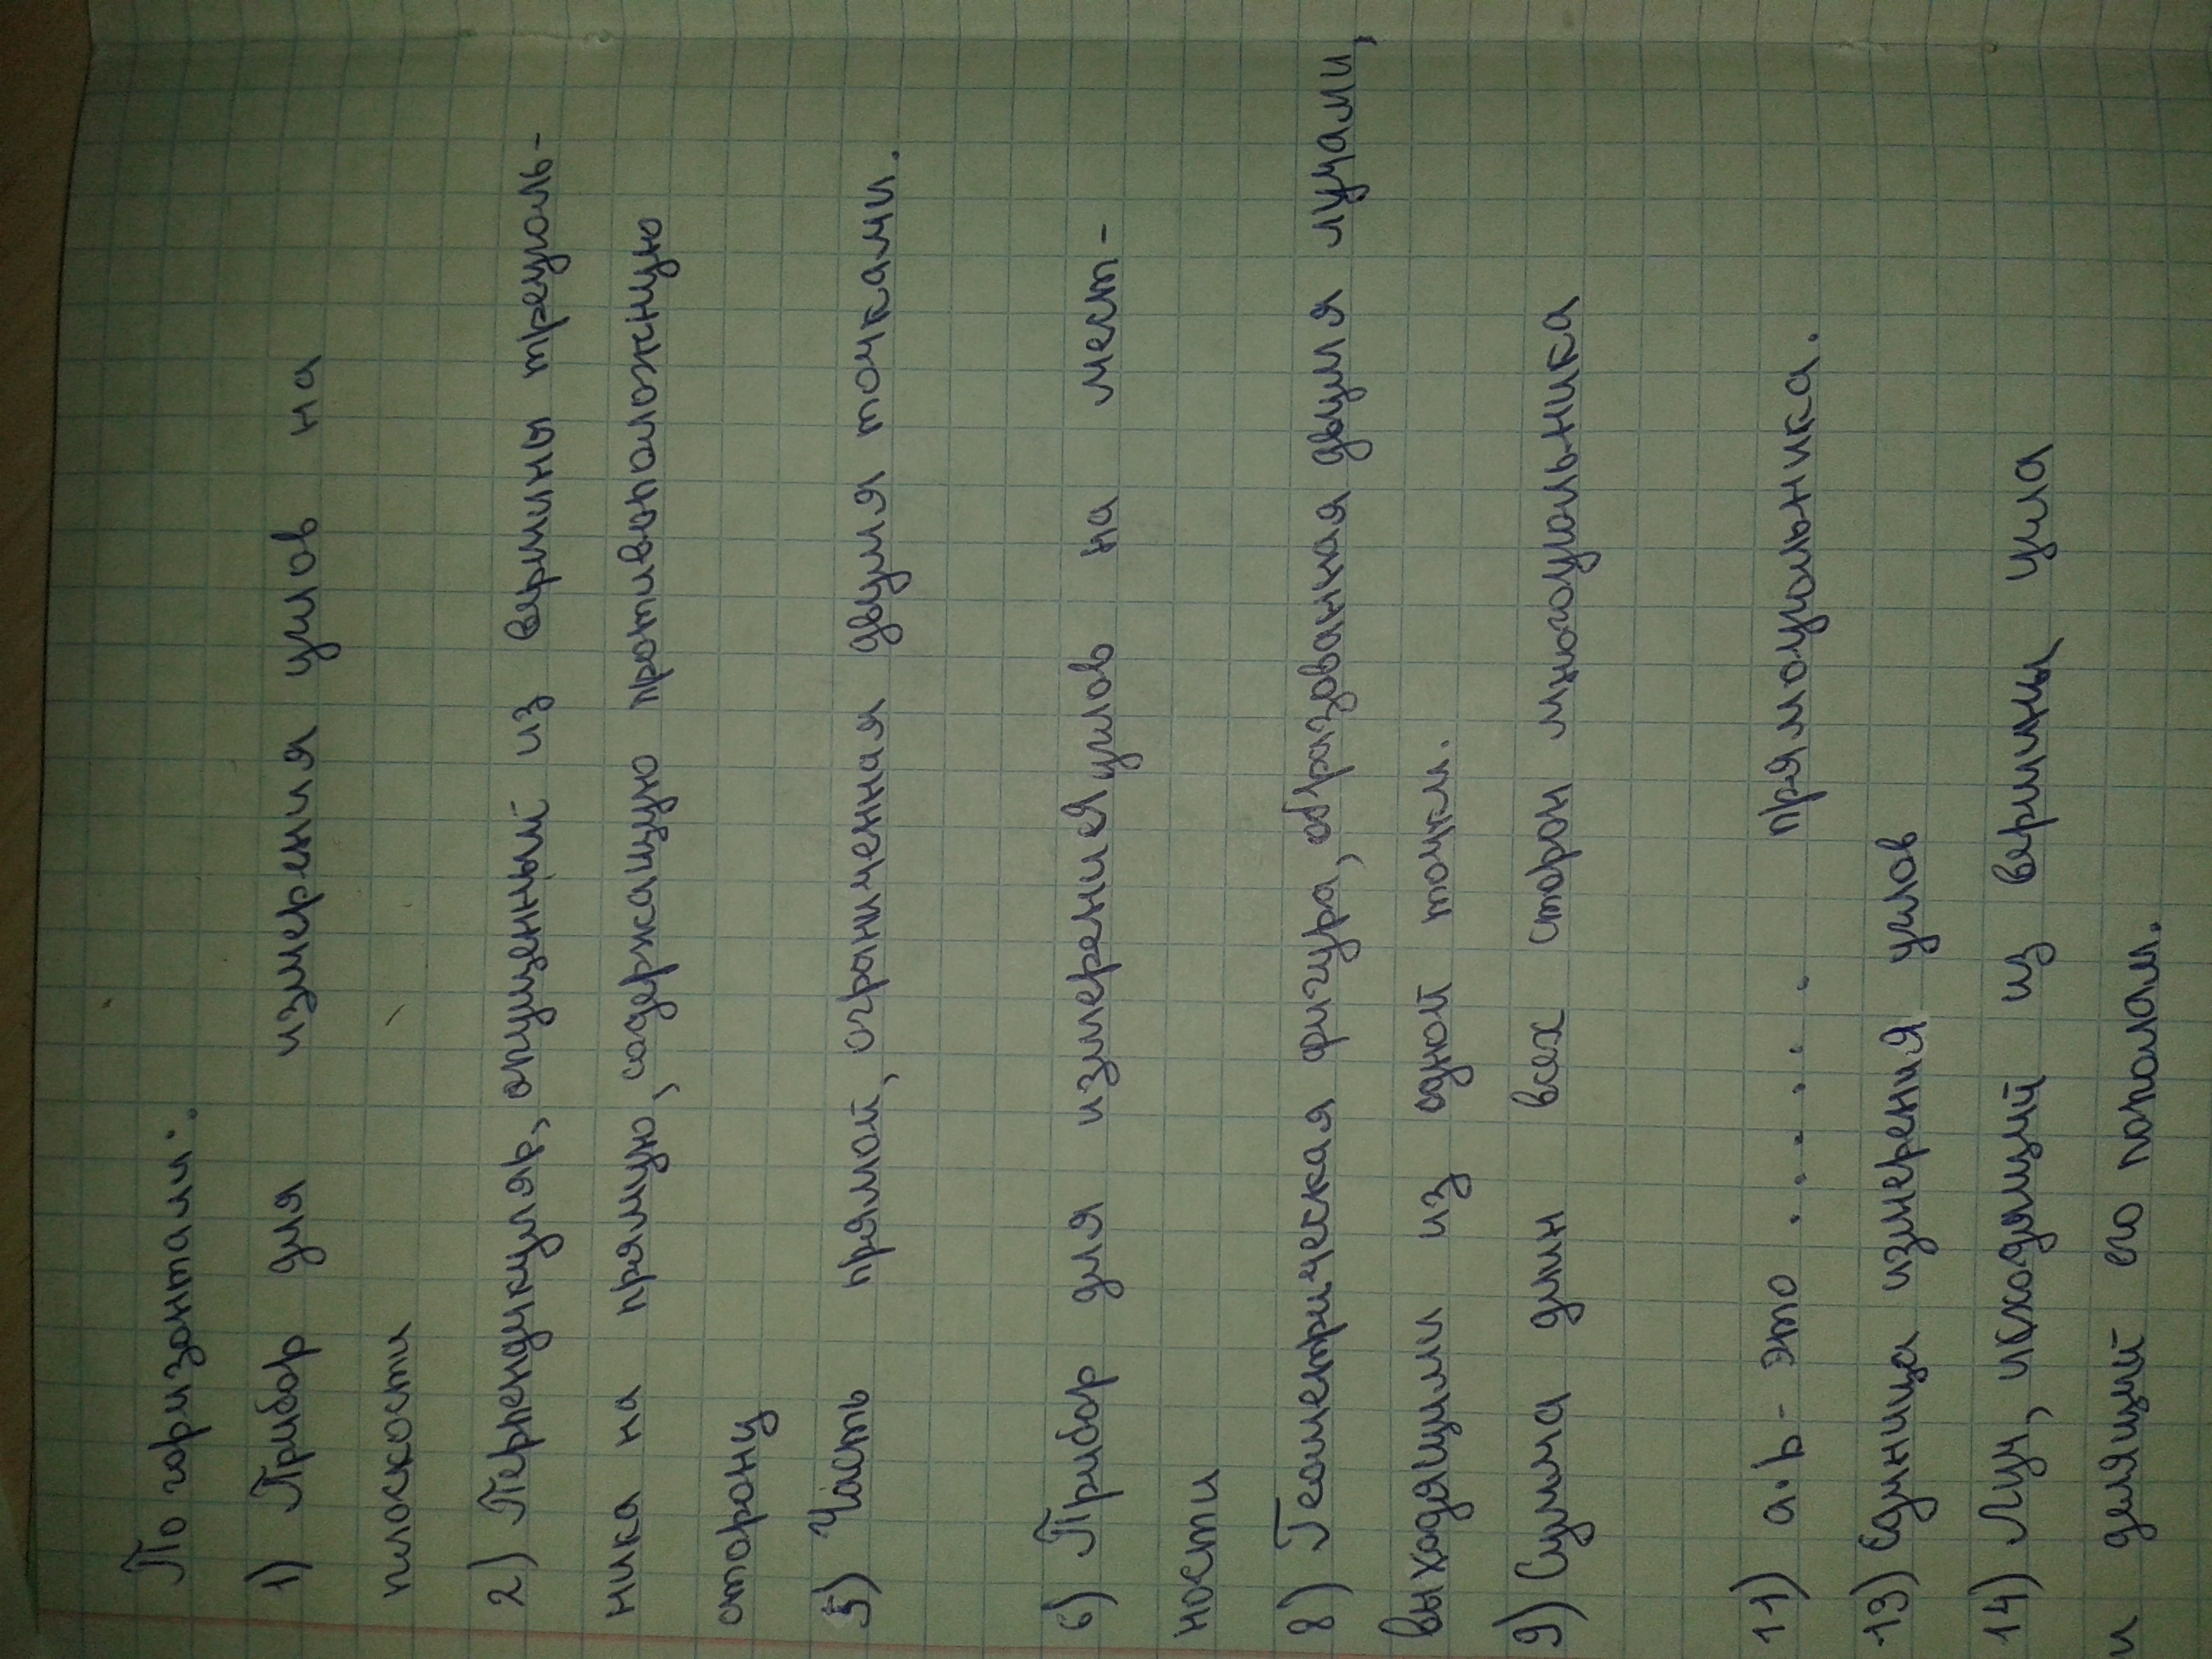 По горизонтали:
1) Прибор для измерения углов на
плоскости
2) Перпендикуляр, опущенный из вершины треуголь-
ника на прямую, содержащую противоположную
сторону
5) Часть прямой, ограниченная двумя точками.
6) Прибор для измерения углов на мест-
ности
8) Геометрическая фигура, образованная двумя лучами,
выходящими из одной точки.
9) Сумма длин всех сторон многоугольника
11) a·b - это ....... прямоугольника.
13) Единица измерения углов
14) Луч, исходящий из вершины угла
и делящий его пополам.